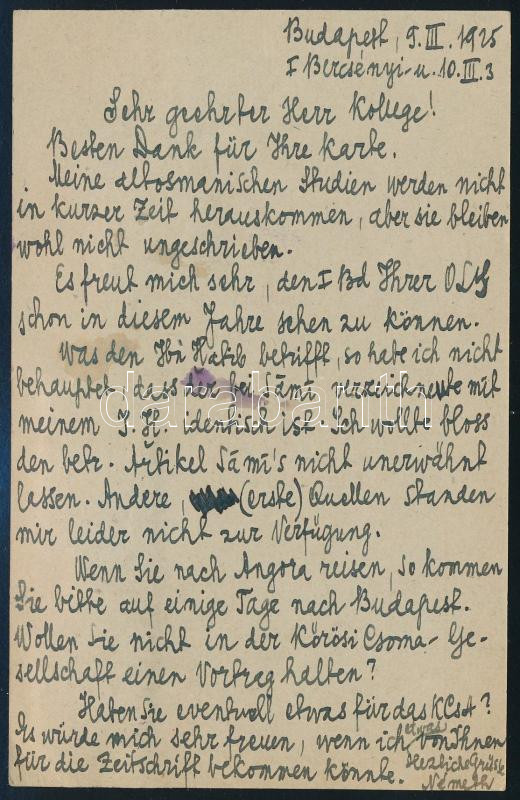 Budapest, 9. III. 1925
I Bercsényi-u. 10. III. 3
Sehr geehrter Herr Kollege!
Besten Dank für Ihre Karte.
Meine altosmanischen Studien werden nicht
in kurzer Zeit herauskommen, aber sie bleiben
wohl nicht ungeschrieben.
Es freut mich sehr, den I Bd Ihrer
schon in diesem Jahre sehen zu können.
Was den Ibn Hatib betrifft, so habe ich nicht
behauptet, dass der bei Sāmī verzeichnete mit
meinem I. H. identisch ist. Ich wollte bloss
den betr. Artikel Sāmī's nicht unerwähnt
lassen. Andere, (erste) Quellen standen
mir leider nicht zur Verfügung.
Wenn Sie nach Angora reisen, so kommen
Sie bitte auf einige Tage nach Budapest.
Wollen Sie nicht in der Kőrösi Csoma-Ge-
sellschaft einen Vortrag halten?
Haben Sie eventuell etwas für das KCsA?
Es würde mich sehr freuen, wenn ich etwas von Ihnen
für die Zeitschrift bekommen könnte.
Herzliche Grüsse
Németh
darabanth